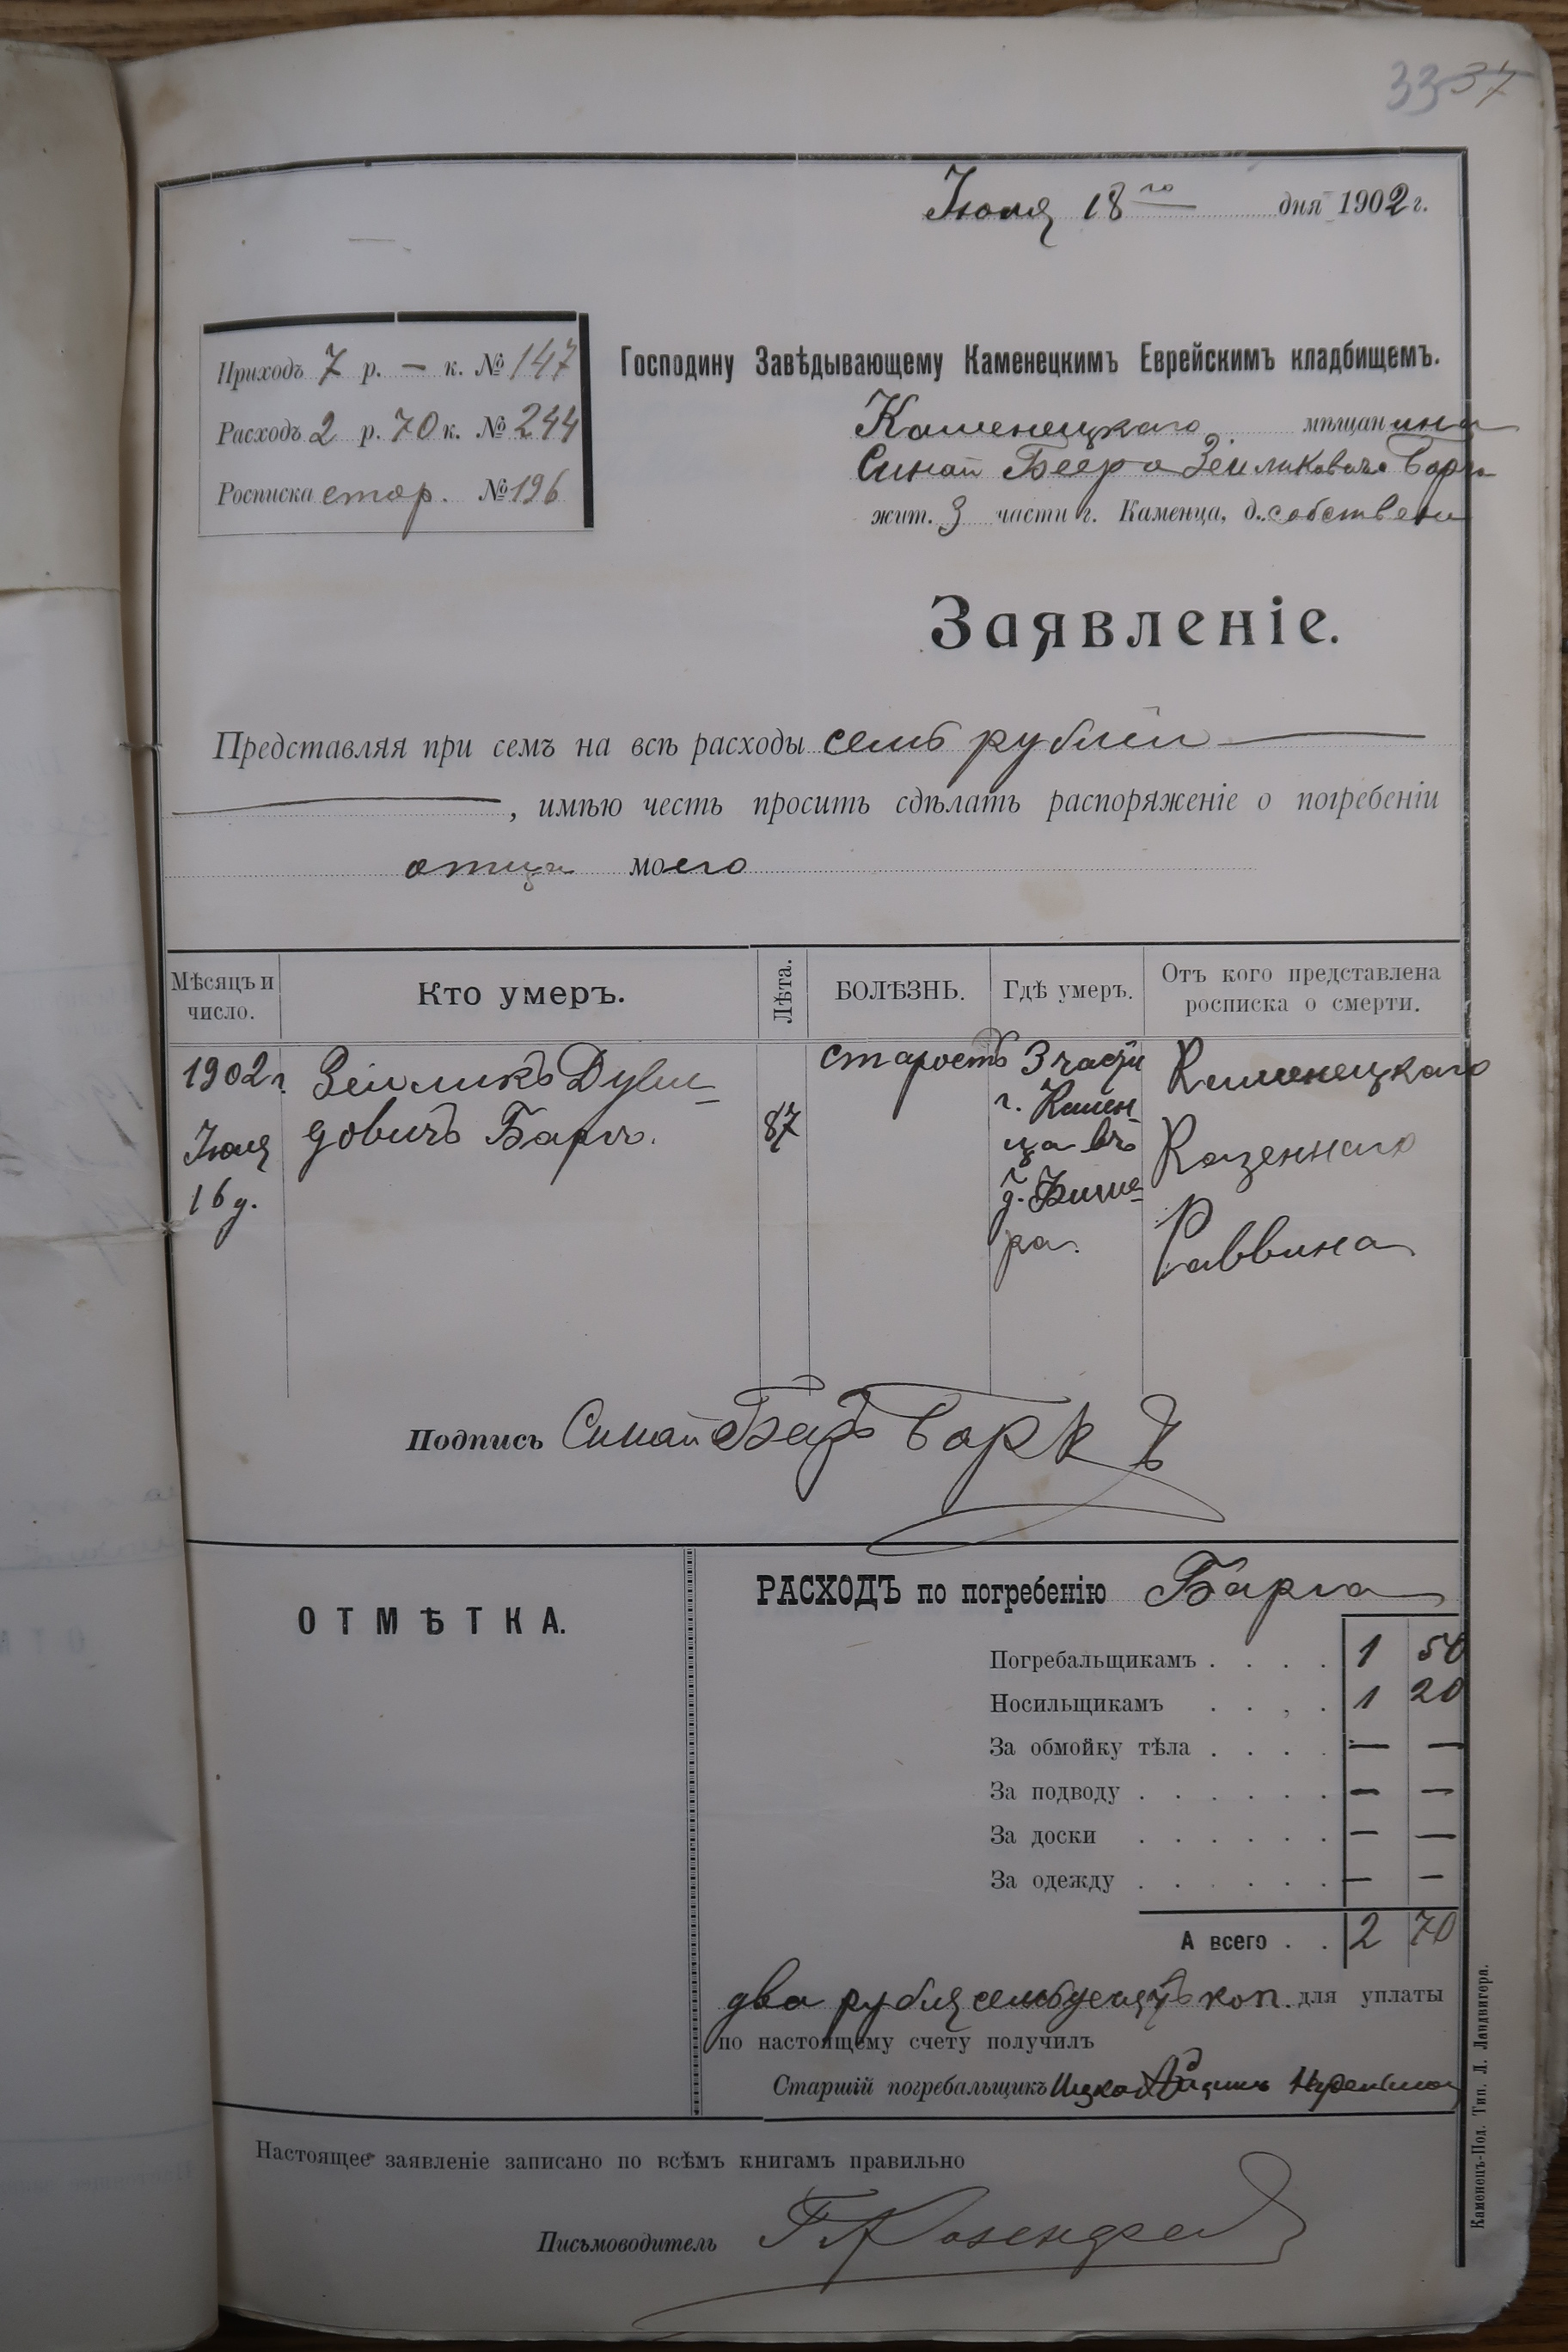 33 37
Іюля 18го дня 1902 г.
Приходъ 7 р. — к. № 147
Расходъ 2 р. 70 к. № 244
Росписка стор. № 196
Господину Завѣдывающему Каменецкимъ Еврейскимъ кладбищемъ.
Каменецкаго мѣщанина
Синай Беера Зейликовича Барга
жит. 3 части г. Каменца, д. собствен
Заявленіе.
Представляя при семъ на всѣ расходы семь рублей —
—, имѣю честь просить сдѣлать распоряженіе о погребеніи
отца моего
Мѣсяцъ и число.
Кто умеръ.
Лѣта.
БОЛѢЗНЬ.
Гдѣ умеръ.
Отъ кого представлена
росписка о смерти.
1902 г.
Іюля
16 д.
Зейликъ Дуви-
довичъ Баргъ.
87
старость
3 части
г. Камен-
ца въ
д.
ра.
Каменецкаго
Казеннаго
Раввина
Подпись Синай Беръ Баркъ
ОТМѢТКА.
РАСХОДЪ по погребенію Барга
Погребальщикамъ . . . . 1 50
Носильщикамъ . . , . 1 20
За обмойку тѣла . . . . — —
За подводу . . . . . . — —
За доски . . . . . . — —
За одежду . . . . . . — —
А всего . . 2 70
два рубля семьдесятъ коп. для уплаты
по настоящему счету получилъ
Старшій погребальщикъ Ицко
Настоящее заявленіе записано по всѣмъ книгамъ правильно
Письмоводитель
Каменецъ-Под. Тип. Л. Ландвигера.